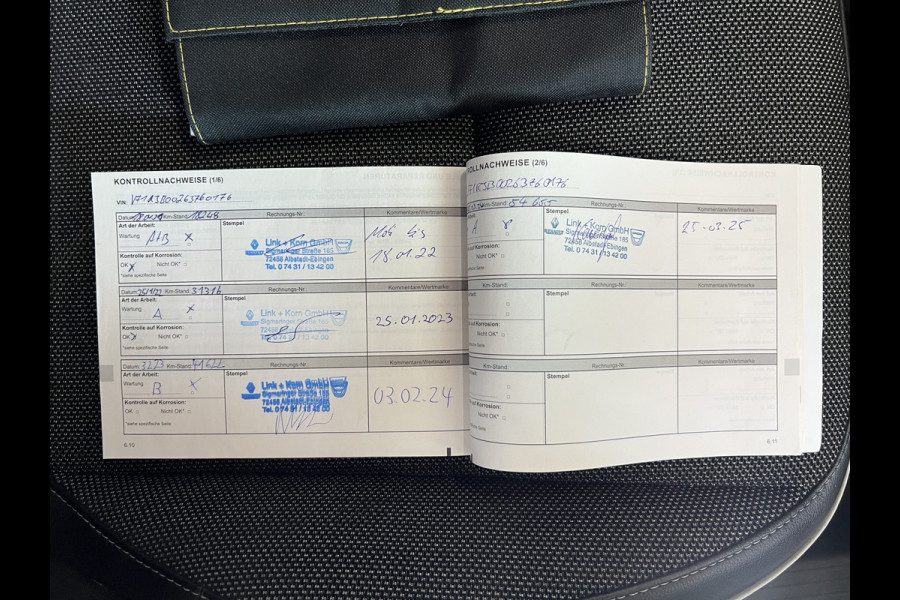 KONTROLLNACHWEISE (1/6)
VIN:
Datum: Km-Stand: Rechnungs-Nr.: Kommentare/Wertmarke
Art der Arbeit: Stempel
Wartung A+B X
Link + Korn GmbH
Sigmaringer Straße 185
72458 Albstadt-Ebingen
Tel. 0 74 31 / 13 42 00
18.01.22
Kontrolle auf Korrosion:
OK X Nicht OK*
*siehe spezifische Seite
Datum: Km-Stand: 31316 Rechnungs-Nr.: Kommentare/Wertmarke
Art der Arbeit: Stempel
Wartung A X
Link + Korn GmbH
Sigmaringer Straße 185
25.01.2023
Kontrolle auf Korrosion:
OK X Nicht OK*
*siehe spezifische Seite
Datum: Km-Stand: 41622 Rechnungs-Nr.: Kommentare/Wertmarke
Art der Arbeit: Stempel
Wartung B X
Link + Korn GmbH
Sigmaringer Straße 185
72458 Albstadt-Ebingen
Tel. 0 74 31 / 13 42 00
03.02.24
Kontrolle auf Korrosion:
OK Nicht OK*
*siehe spezifische Seite
0.10
OLLNACHWEISE (2/6)
Km-Stand: 54 655 Rechnungs-Nr.: Kommentare/Wertmarke
Stempel
Link + Korn GmbH
Sigmaringer Straße 185
72458 Albstadt-Ebingen
Tel. 0 74 31 / 13 42 00
25.02.25
Korrosion:
Nicht OK*
Km-Stand: Rechnungs-Nr.: Kommentare/Wertmarke
Stempel
Korrosion:
Nicht OK*
Km-Stand: Rechnungs-Nr.: Kommentare/Wertmarke
Stempel
Korrosion:
Nicht OK*
0.11